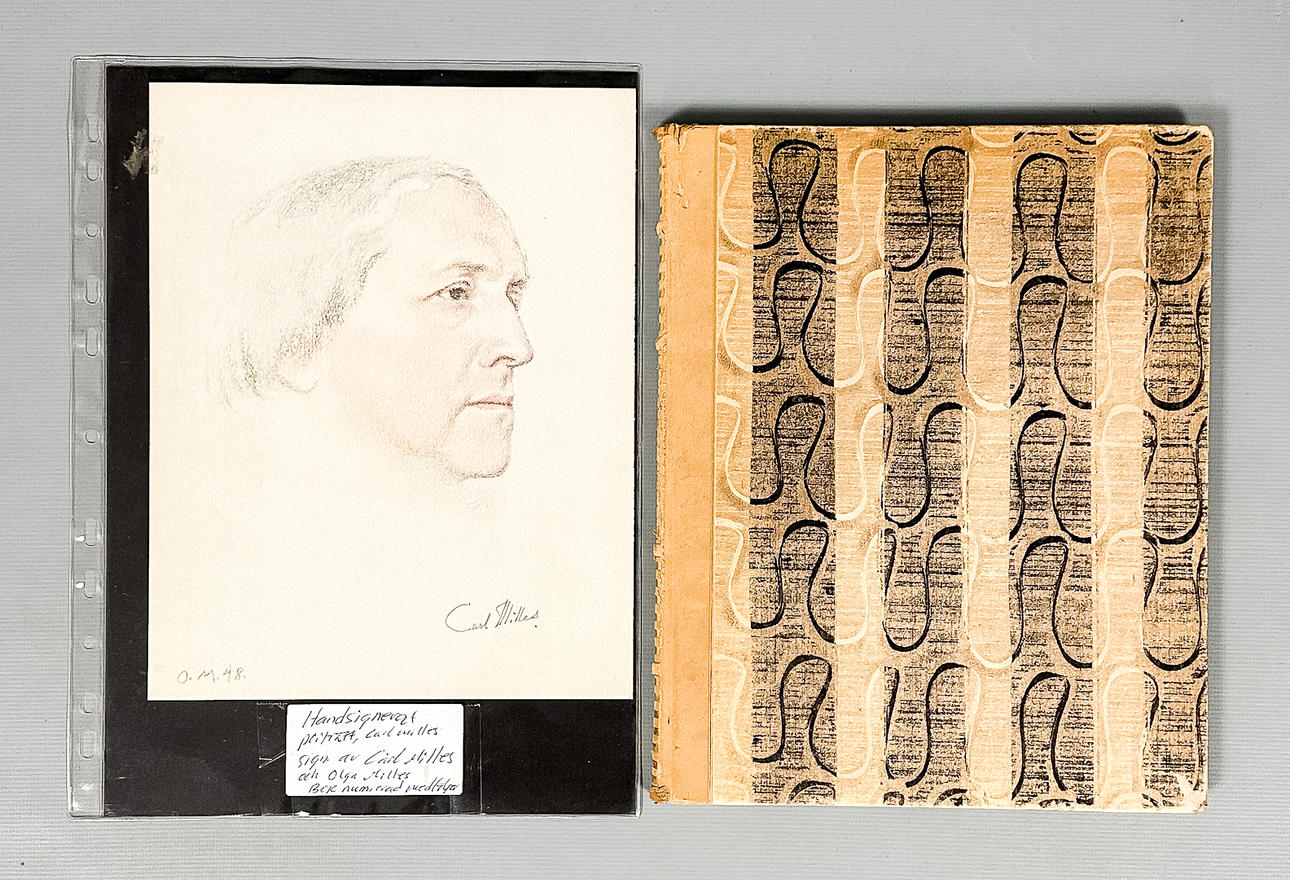 Carl Milles
O. M. 48.
Handsignerat
porträtt, Carl Milles
sign av Carl Milles
och Olga Milles
Bok numrerad medföljer